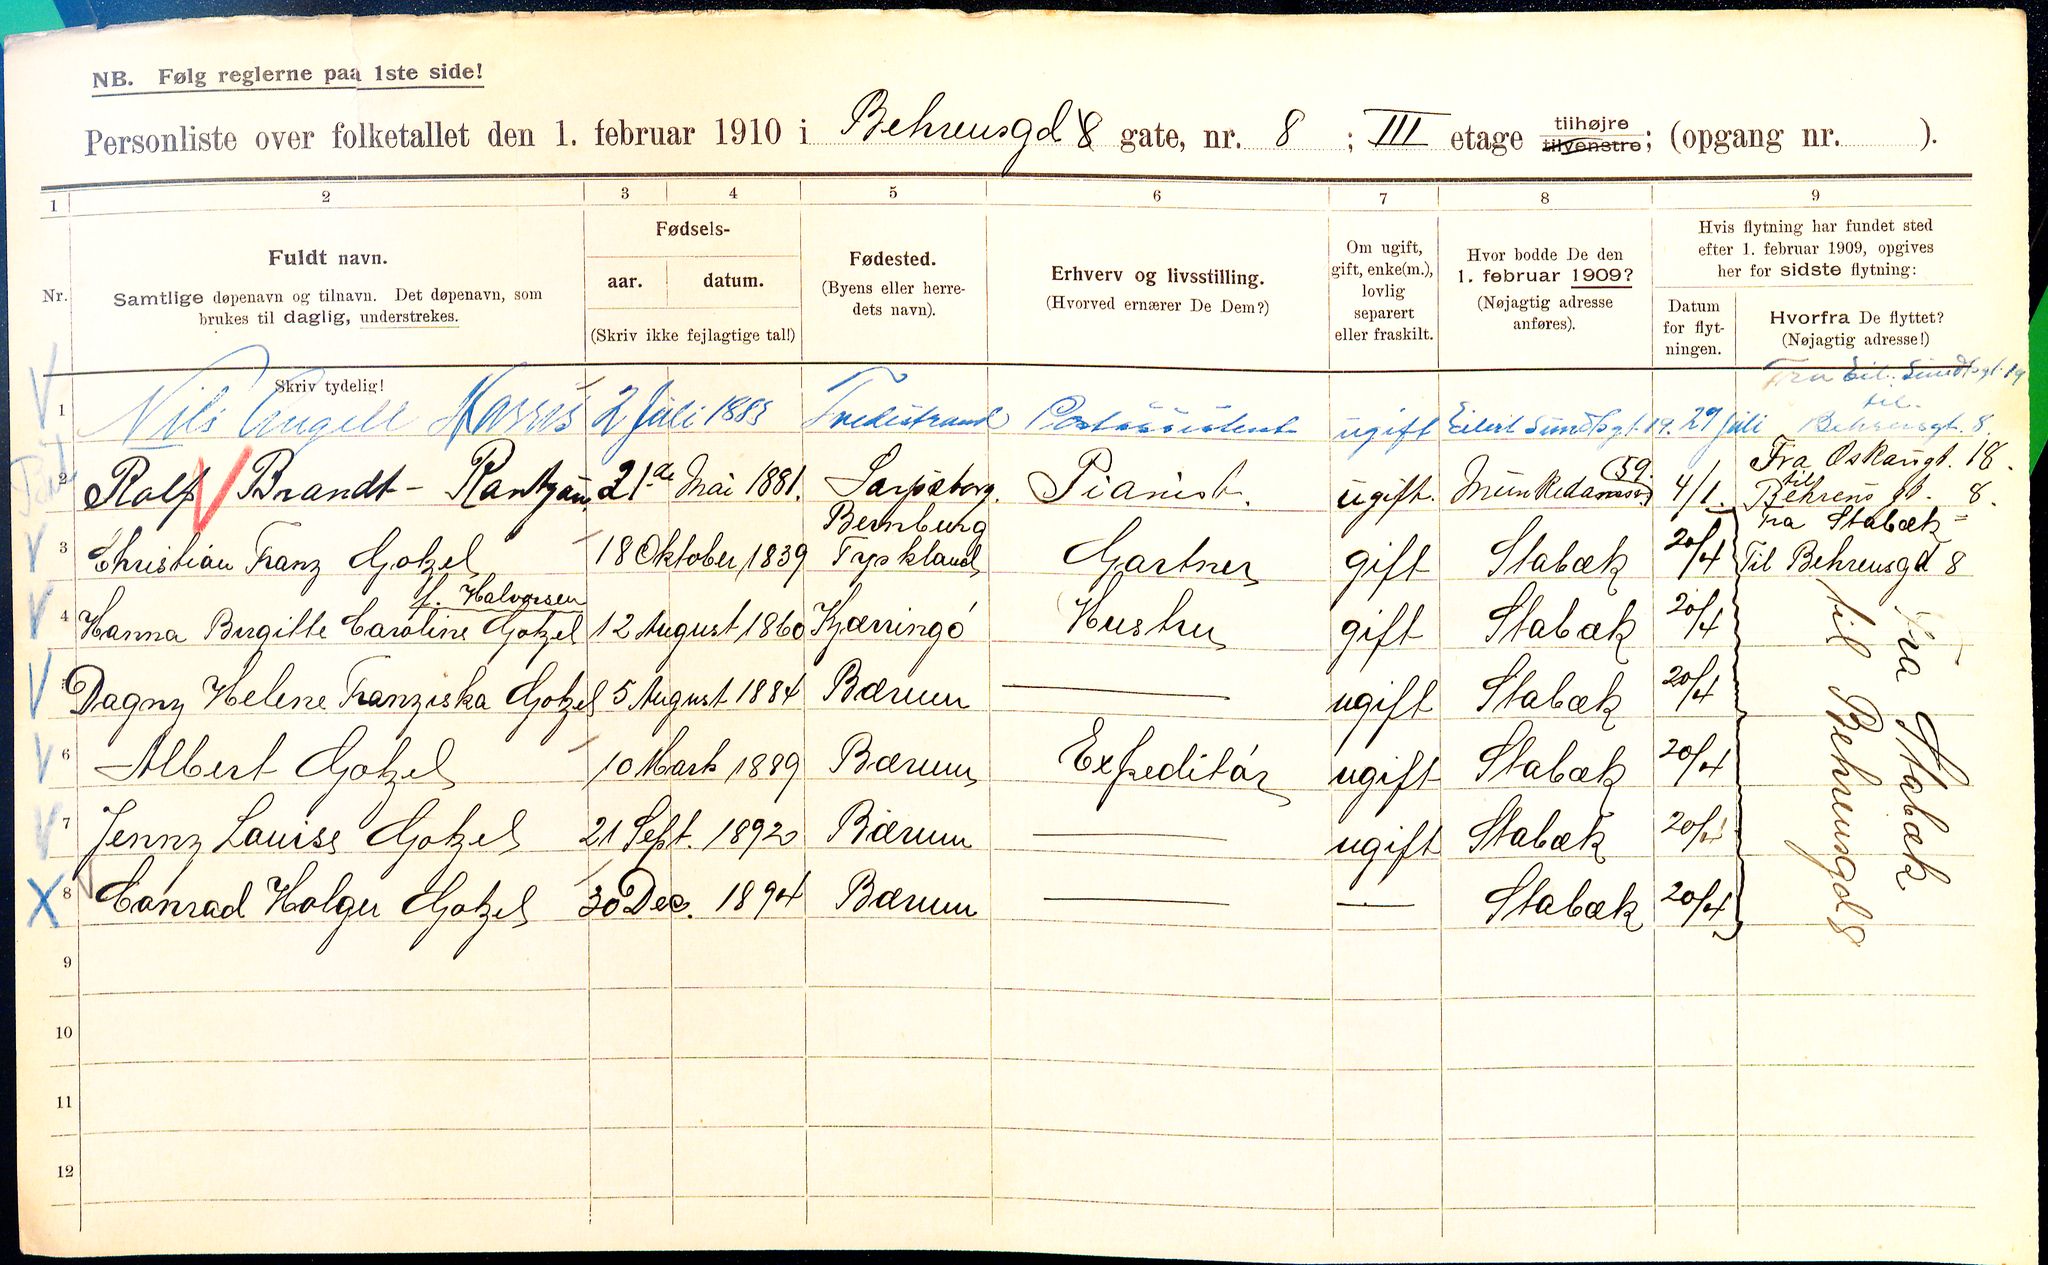 NB. Følg reglerne paa 1ste side!
Personliste over folketallet den 1. februar 1910 i Behrensgd 8 gate, nr. 8 ; III etage tilhøjre tilvenstre; (opgang nr. ).
1 2 3 4 5 6 7 8 9
Nr.
Fuldt navn.
Samtlige døpenavn og tilnavn. Det døpenavn, som
brukes til daglig, understrekes.
Skriv tydelig!
Fødsels-
aar. datum.
(Skriv ikke fejlagtige tal!)
Fødested.
(Byens eller herre-
dets navn).
Erhverv og livsstilling.
(Hvorved ernærer De Dem?)
Om ugift,
gift, enke(m.),
lovlig
separert
eller fraskilt.
Hvor bodde De den
1. februar 1909?
(Nøjagtig adresse
anføres).
Hvis flytning har fundet sted
efter 1. februar 1909, opgives
her for sidste flytning:
Datum
for flyt-
ningen.
Hvorfra De flyttet?
(Nøjagtig adresse!)
Fra Eil. Sundtsgt. 19
til
1 Nils Angell 2 Juli 1885 Tvedestrand Postassistent ugift Eilert Sundtsgt. 19. 29 Juli Behrensgt. 8.
59. Fra Oskarsgt. 18.
2 Rolf Brandt-Rantzau, 21de Mai 1881. Sarpsborg. Pianist. ugift. 4/1. til Behrens gt. 8.
Bernburg Fra Stabæk
3 Christian Franz Gotzel 18 Oktober 1839 Tyskland Gartner gift Stabæk 20/4 Til Behrensgd 8
f. Halvorsen
4 Hanna Birgitte Caroline Gotzel 12 August 1860 Kjærringö Hustru gift Stabæk 20/4
Dagny Helene Franziska Gotzel 5 August 1884 Bærum — ugift Stabæk 20/4
6 Albert Gotzel 10 Marts 1889 Bærum Expeditör ugift Stabæk 20/4
7 Jenny Louise Gotzel 21 Sept. 1892 Bærum — ugift Stabæk 20/4
8 Conrad Holger Gotzel 30 Dec. 1894 Bærum — — Stabæk 20/4
fra Stabæk
til Behrensgd 8
9
10
11
12